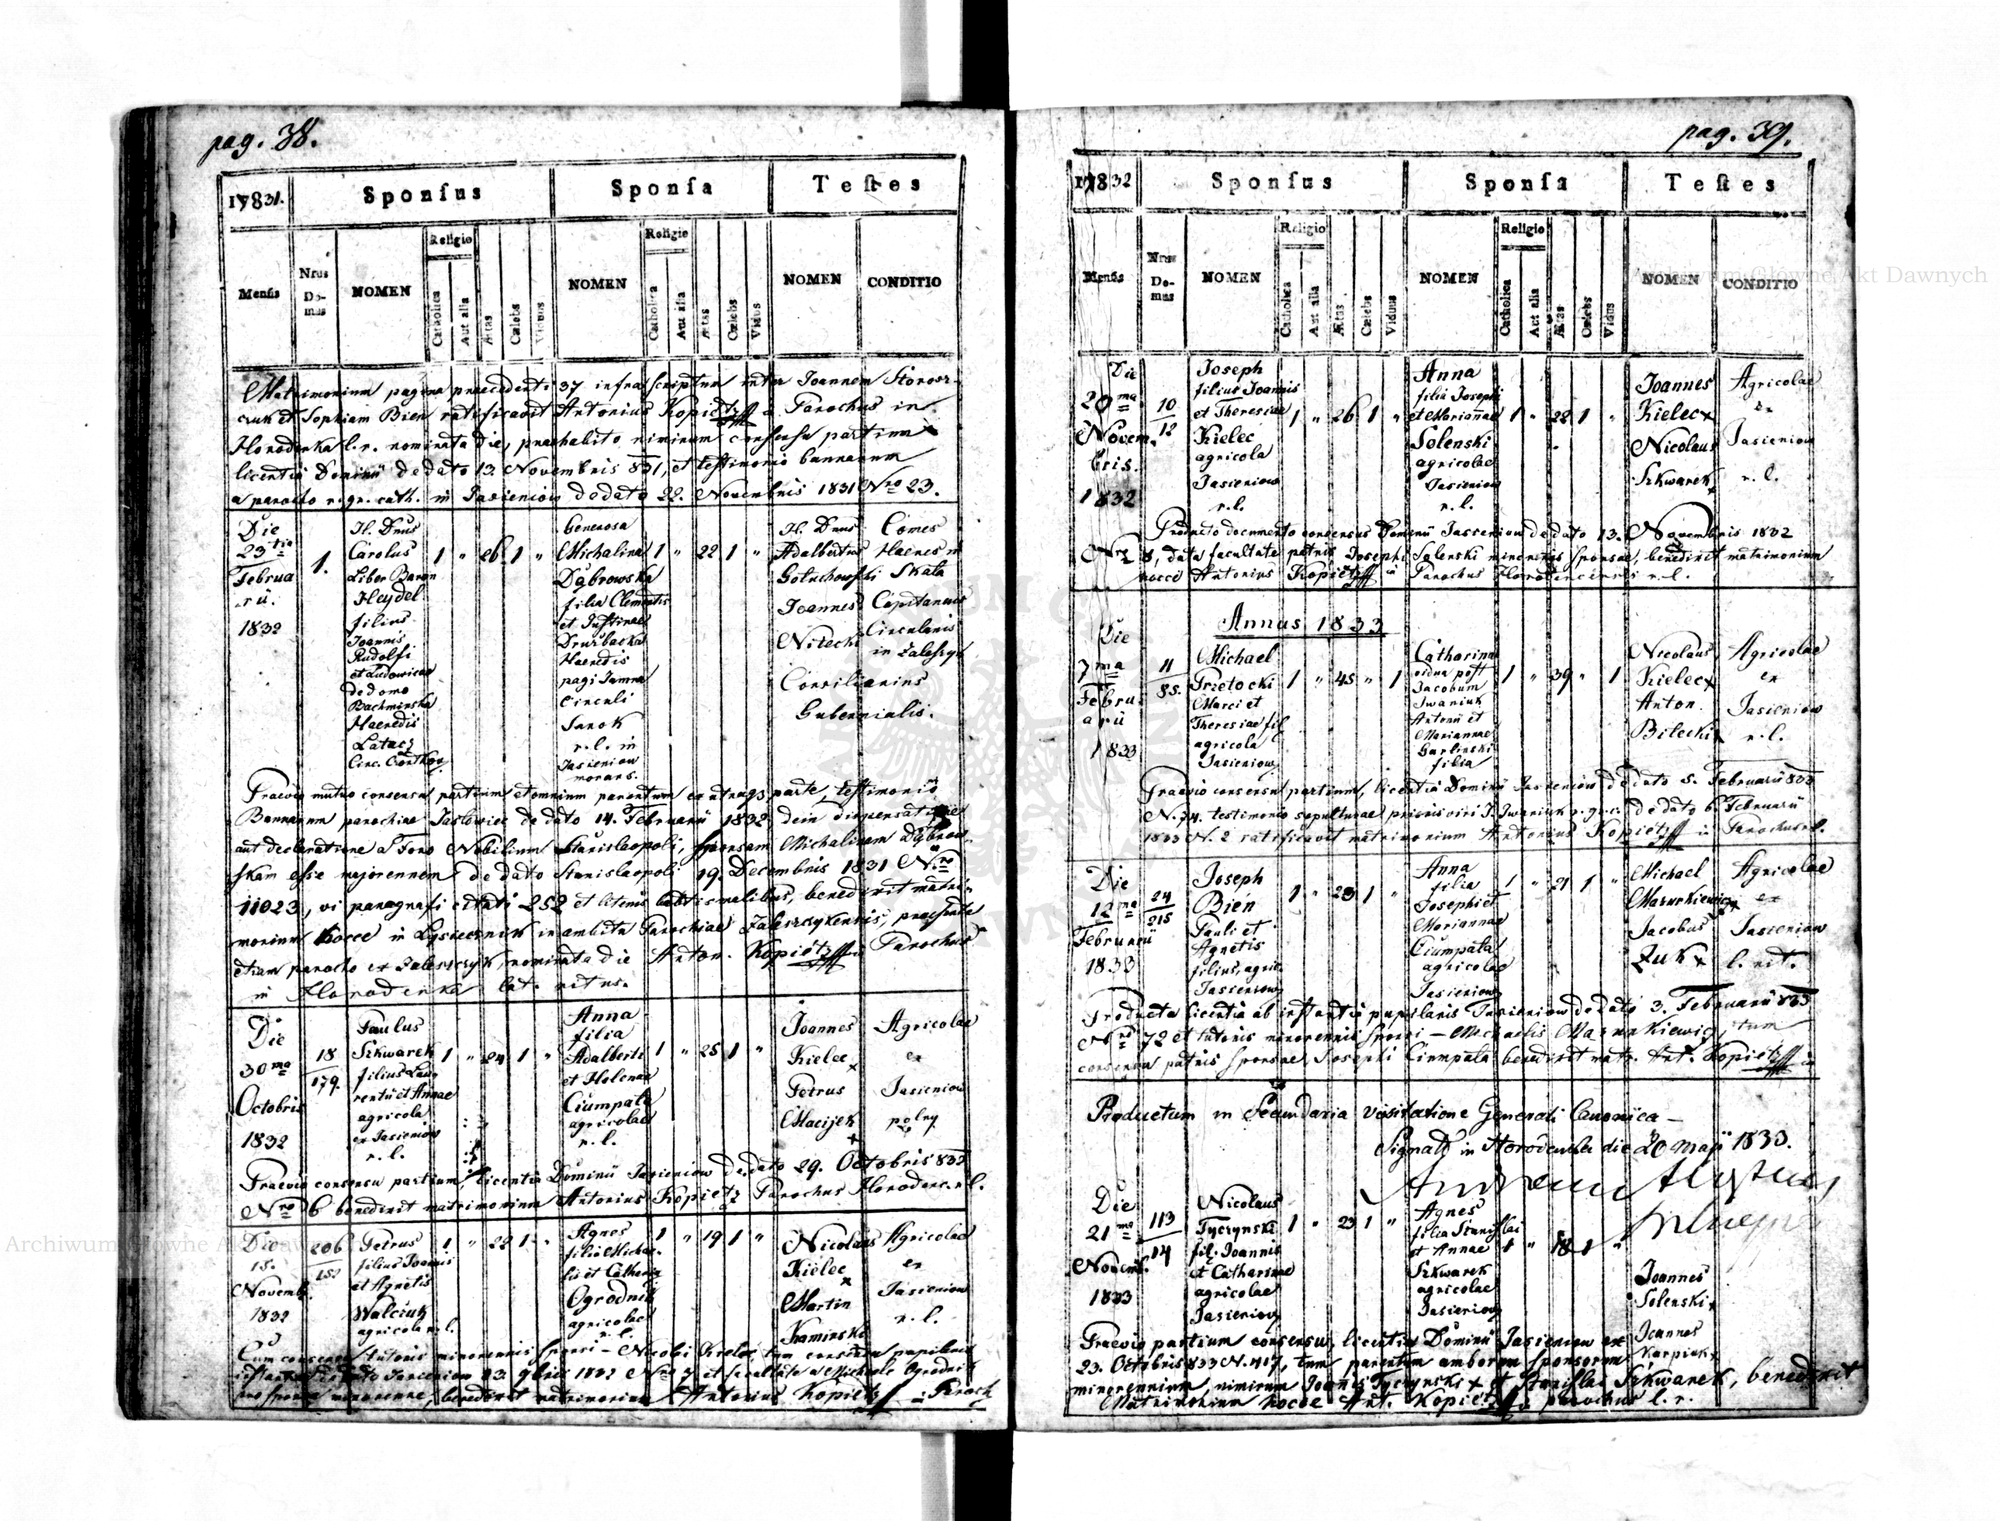 pag. 38.
17831.
Sponsus
Sponsa
Testes
Mensis
Nrus Domus
NOMEN
Religio
Catholica
Aut alia
Ætas
Cælebs
Viduus
NOMEN
Religio
Catholica
Aut alia
Ætas
Cælebs
Vidua
NOMEN
CONDITIO
Matrimonium pagina praecedenti 37 infrascriptum inter Joannem Storosz-
czuk et Sophiam Bien ratificavit Antonius Kopietz Parochus in
Horodenka l. r. nominata die, praehabito nimirum consensu partium
licentia Dominii de dato 13 Novembris 831, et testimonio bannorum
a parocho r. gr. cath. in Jasieniow de dato 22. Novembris 1831 Nro 23.
Die 23tia Februarii. 1832
1.
Jll. Dnus Carolus Liber Baron Heydel filius Joannis Rudolfi et Ludovicae de domo Bachminska Haeredis Latacz Circ. Czortkow
1 " 26 1 "
Generosa Michalina Dąbrowska filia Clementis et Justinae Druzbacka Haeredis pagi Jamna Circuli Sanok r. l. in Jasieniow morans.
1 " 22 1 "
Jll. Dnus Adalbertus Gołuchowski
Comes Haeres in Skala
Joannes Nitecki
Capitaneus Circularis in Zaleszyk
Consiliarius Gubernialis.
Praevio mutuo consensu partium et omnium parentum ex utraq; parte, testimonio
Bannorum parochiae Jaslowiec de dato 14. Februarii 1832 dein
aut declaratione a Foro Nobilium Stanislaopoli, sponsam Michalinam Dąbrow-
skam esse majorennem de dato Stanislaopoli 19. Decembris 1831 Nro
11023, vi paragrafi citati 252 et literis baptismalibus, benedixit matri-
monium hocce in in ambitu Parochiae Zaleszczykensis, praesente
etiam parocho ex Zaleszczyk, nominata die Anton. Kopietz Parochus
in Horodenka lat. ritus.
Die 30ma Octobris 1832
18
179.
Paulus Szkwarek filius Laurentii et Annae agricola ex Jasieniow r. l.
1 " 24 1 "
Anna filia Adalberti et Helenae Ciumpała agricolae r. l.
1 " 25 1 "
Joannes Kielec x
Petrus Macijek x
Agricolae ex Jasieniow polny
Praevio consensu partium licentia Dominii Jasieniow de dato 29. Octobris 832
Nro 6 benedixit matrimonium Antonius Kopietz Parochus Horodenc. r. l.
Die 15. Novemb. 1832
206
Petrus filius Joannis et Agnetis Walciuk agricola r. l.
1 " 22 1 "
Agnes filia Michaelis et Catharin Ogrodnik agricolae r. l.
1 " 19 1 "
Nicolaus Kielec x
Martin Kaminski
Agricolae ex Jasieniow r. l.
Cum consensu tutoris minorennis sponsi - Nicolai Kielec, tum
Jasieniow 13. 9bris 1832 Nro 7 et facultate a Michaele Ogrodnik
sponsae minorenne, benedixit matrimonium Antonius Kopietz Paroch
pag. 39.
17832
Sponsus
Sponsa
Testes
Mensis
Nrus Domus
NOMEN
Religio
Catholica
Aut alia
Ætas
Cælebs
Viduus
NOMEN
Religio
Catholica
Aut alia
Ætas
Cælebs
Vidua
NOMEN
CONDITIO
Die 20ma Novembris. 1832
10
12
Joseph filius Joannis et Theresiae Kielec agricola Jasieniow r. l.
1 " 26 1 "
Anna filia Josephi et Mariannae Solenski agricolae Jasieniow r. l.
1 " 22 1 "
Joannes Kielec x
Nicolaus Szkwarek x
Agricolae ex Jasieniow r. l.
Producto documento consensus Dominii Jasieniow de dato 13. Novembris 1832
Nro 8, data facultate patris Josephi Solenski minorenis sponsae, benedixit matrimonium
hocce Antonius Kopietz Parochus Horodencensis r. l.
Annus 1833
Die 7ma Februarii 1833
11
85.
Michael Przetocki Marci et Theresiae fil. agricola Jasieniow
1 " 45 " 1
Catharina vidua post Jacobum Iwaniuk Antonii et Mariannae Garlinski filia
1 " 39 " 1
Nicolaus Kielec x
Anton. Bilecki x
Agricolae ex Jasieniow r. l.
Praevio consensu partium, licentia Dominii Jasieniow de dato 5. Februarii 833
N. 74. testimonio sepulturae prioris viri J. Iwaniuk r. g. c. de dato 6 Februarii
1833 N. 2 ratificavit matrimonium Antonius Kopietz Parochus r. l.
Die 12ma Februarii 1833
24
215
Joseph Bien Pauli et Agnetis filius, agric. Jasieniow
1 " 23 1 "
Anna filia Josephi et Mariannae Ciumpała agricolae Jasieniow
1 " 21 1 "
Michael Mazurkiewicz x
Jacobus Żuk x
Agricolae ex Jasieniow l. rit.
Producta licentia ab instantia pupilaris Jasieniow de dato 3. Februarii 833
Nro 72 et tutoris minorennis sponsi - Michaelis Mazurkiewicz, tum
consensu patris sponsae Josephi Ciumpała benedixit matr. Ant. Kopietz
Productum in Secundaria visitatione Generali Canonica -
Signatt in Horodenka die 20 maji 1833.
Die 21ma Novemb. 1833
113
14
Nicolaus Tyczynski fil. Joannis et Catharinae agricolae Jasieniow
1 " 23 1 "
Agnes filia Stanislai et Annae Szkwarek agricolae Jasieniow
1 " 18 1 "
Joannes Solenski x
Joannes Karpiak x
Praevio partium consensu, licentia Dominii Jasieniow ex
23. Octobris 833 N. 417, tum parentum amborum sponsorum
minorennium, nimirum Joannis Tyczynski x et Stanislai Szkwarek, benedixit
Matrimonium hocce Ant. Kopietz parochus l. r.
Archiwum Główne Akt Dawnych
Archiwum Główne Akt Dawnych